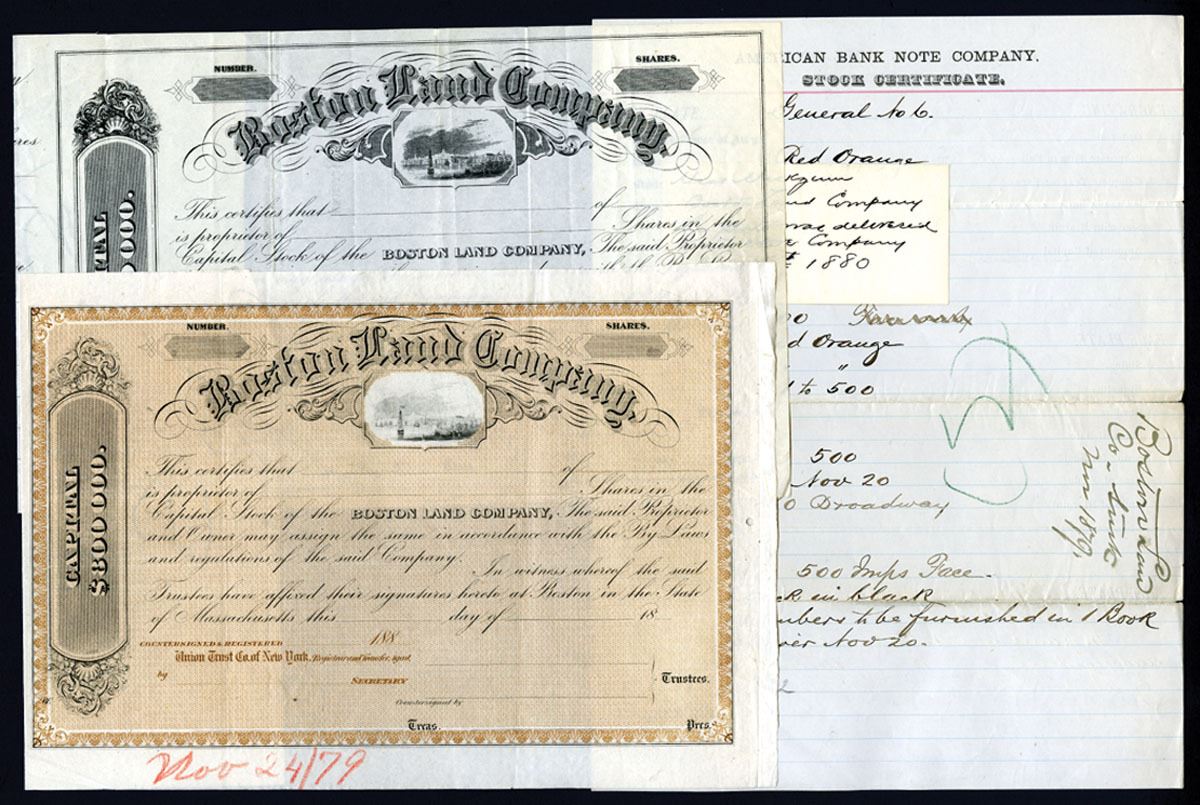 NUMBER.
SHARES.
Boston Land Company.
CAPITAL
000.
This certifies that of
is proprietor of Shares in the
Capital Stock of the BOSTON LAND COMPANY, The said Proprietor
NUMBER.
SHARES.
Boston Land Company.
CAPITAL
$800000.
This certifies that of
is proprietor of Shares in the
Capital Stock of the BOSTON LAND COMPANY, The said Proprietor
and Owner may assign the same in accordance with the By Laws
and regulations of the said Company.
In witness whereof the said
Trustees have affixed their signatures hereto at Boston in the State
of Massachusetts this day of 18
COUNTERSIGNED & REGISTERED 188
Union Trust Co. of New York, Registrar and Transfer Agent
by
SECRETARY
Trustees.
Countersigned by
Treas.
Pres.
Nov 24/79
AMERICAN BANK NOTE COMPANY.
STOCK CERTIFICATE.
General No 6.
Red Orange
Company
delivered
Company
1880
Orange
"
to 500
500
Nov 20
Broadway
500 Imps Face.
in black
to be furnished in 1 Book
Nov 20.
Boston Land
Co.
1879